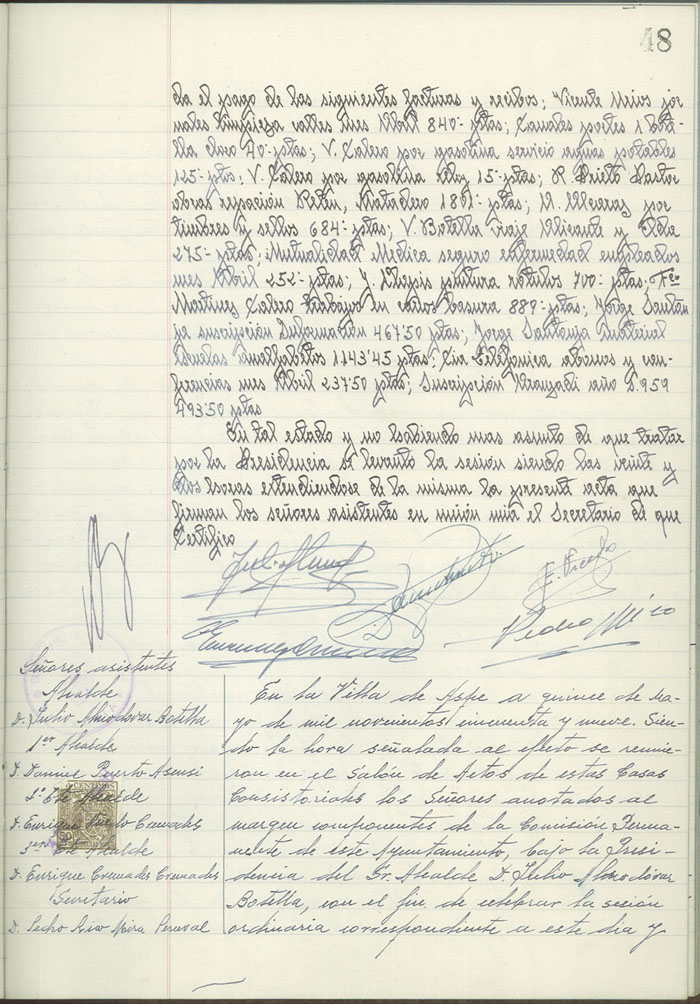 48
da el pago de las siguientes facturas y recibos; Vicente Urios jor
nales limpieza calles mes Abril 840'- ptas; Canales portes 1 bote
lla cloro 40'- ptas; V. Calero por gasolina servicio aguas potables
125- ptas; V. Calero por gasolina 15- ptas; R. Prieto Pastor
obras repación Retén, Matadero 1801- ptas; por
timbres y sellos 684- ptas; V. Botella viaje Alicante y Elda
275- ptas; Mutualidad Medica seguro enfermedad empleados
mes Abril 252- ptas; J. pintura rotulos 700- ptas; Fco
Martinez Calero trabajos en carros basura 889- ptas; Jorge Santon
ja suscripción Información 467'50 ptas; Jorge Santonja material
escuelas analfabetos 1143'45 ptas; Cia Telefonica abonos y con-
ferencias mes Abril 237'50 ptas; Suscripción Aranzadi año 1.959
493'50 ptas
En tal estado y no habiendo mas asunto de que tratar
por la Presidencia se levantó la sesión siendo las veinte y
dos horas extendiendose de la misma la presente acta que
firman los señores asistentes en unión mia el Secretario de que
Certifico
Pedro Mico
Señores asistentes
Alcalde
D. Julio Almodóvar Botella
1er Alcalde
D. Daniel Puerto Asensi
2º Tte Alcalde
D. Enrique Cremades
3er Tte Alcalde
D. Enrique Cremades Cremades
Secretario
D. Pedro Mico Mira Perceval
En la Villa de Aspe a quince de ma-
yo de mil novecientos cincuenta y nueve. Sien-
do la hora señalada al efecto se reunie-
ron en el Salón de Actos de estas Casas
Consistoriales los Señores anotados al
margen componentes de la Comisión Perma-
nente de este Ayuntamiento, bajo la Presi-
dencia del Sr. Alcalde D. Julio Almodóvar
Botella, con el fin de celebrar la sesión
ordinaria correspondiente a este dia y